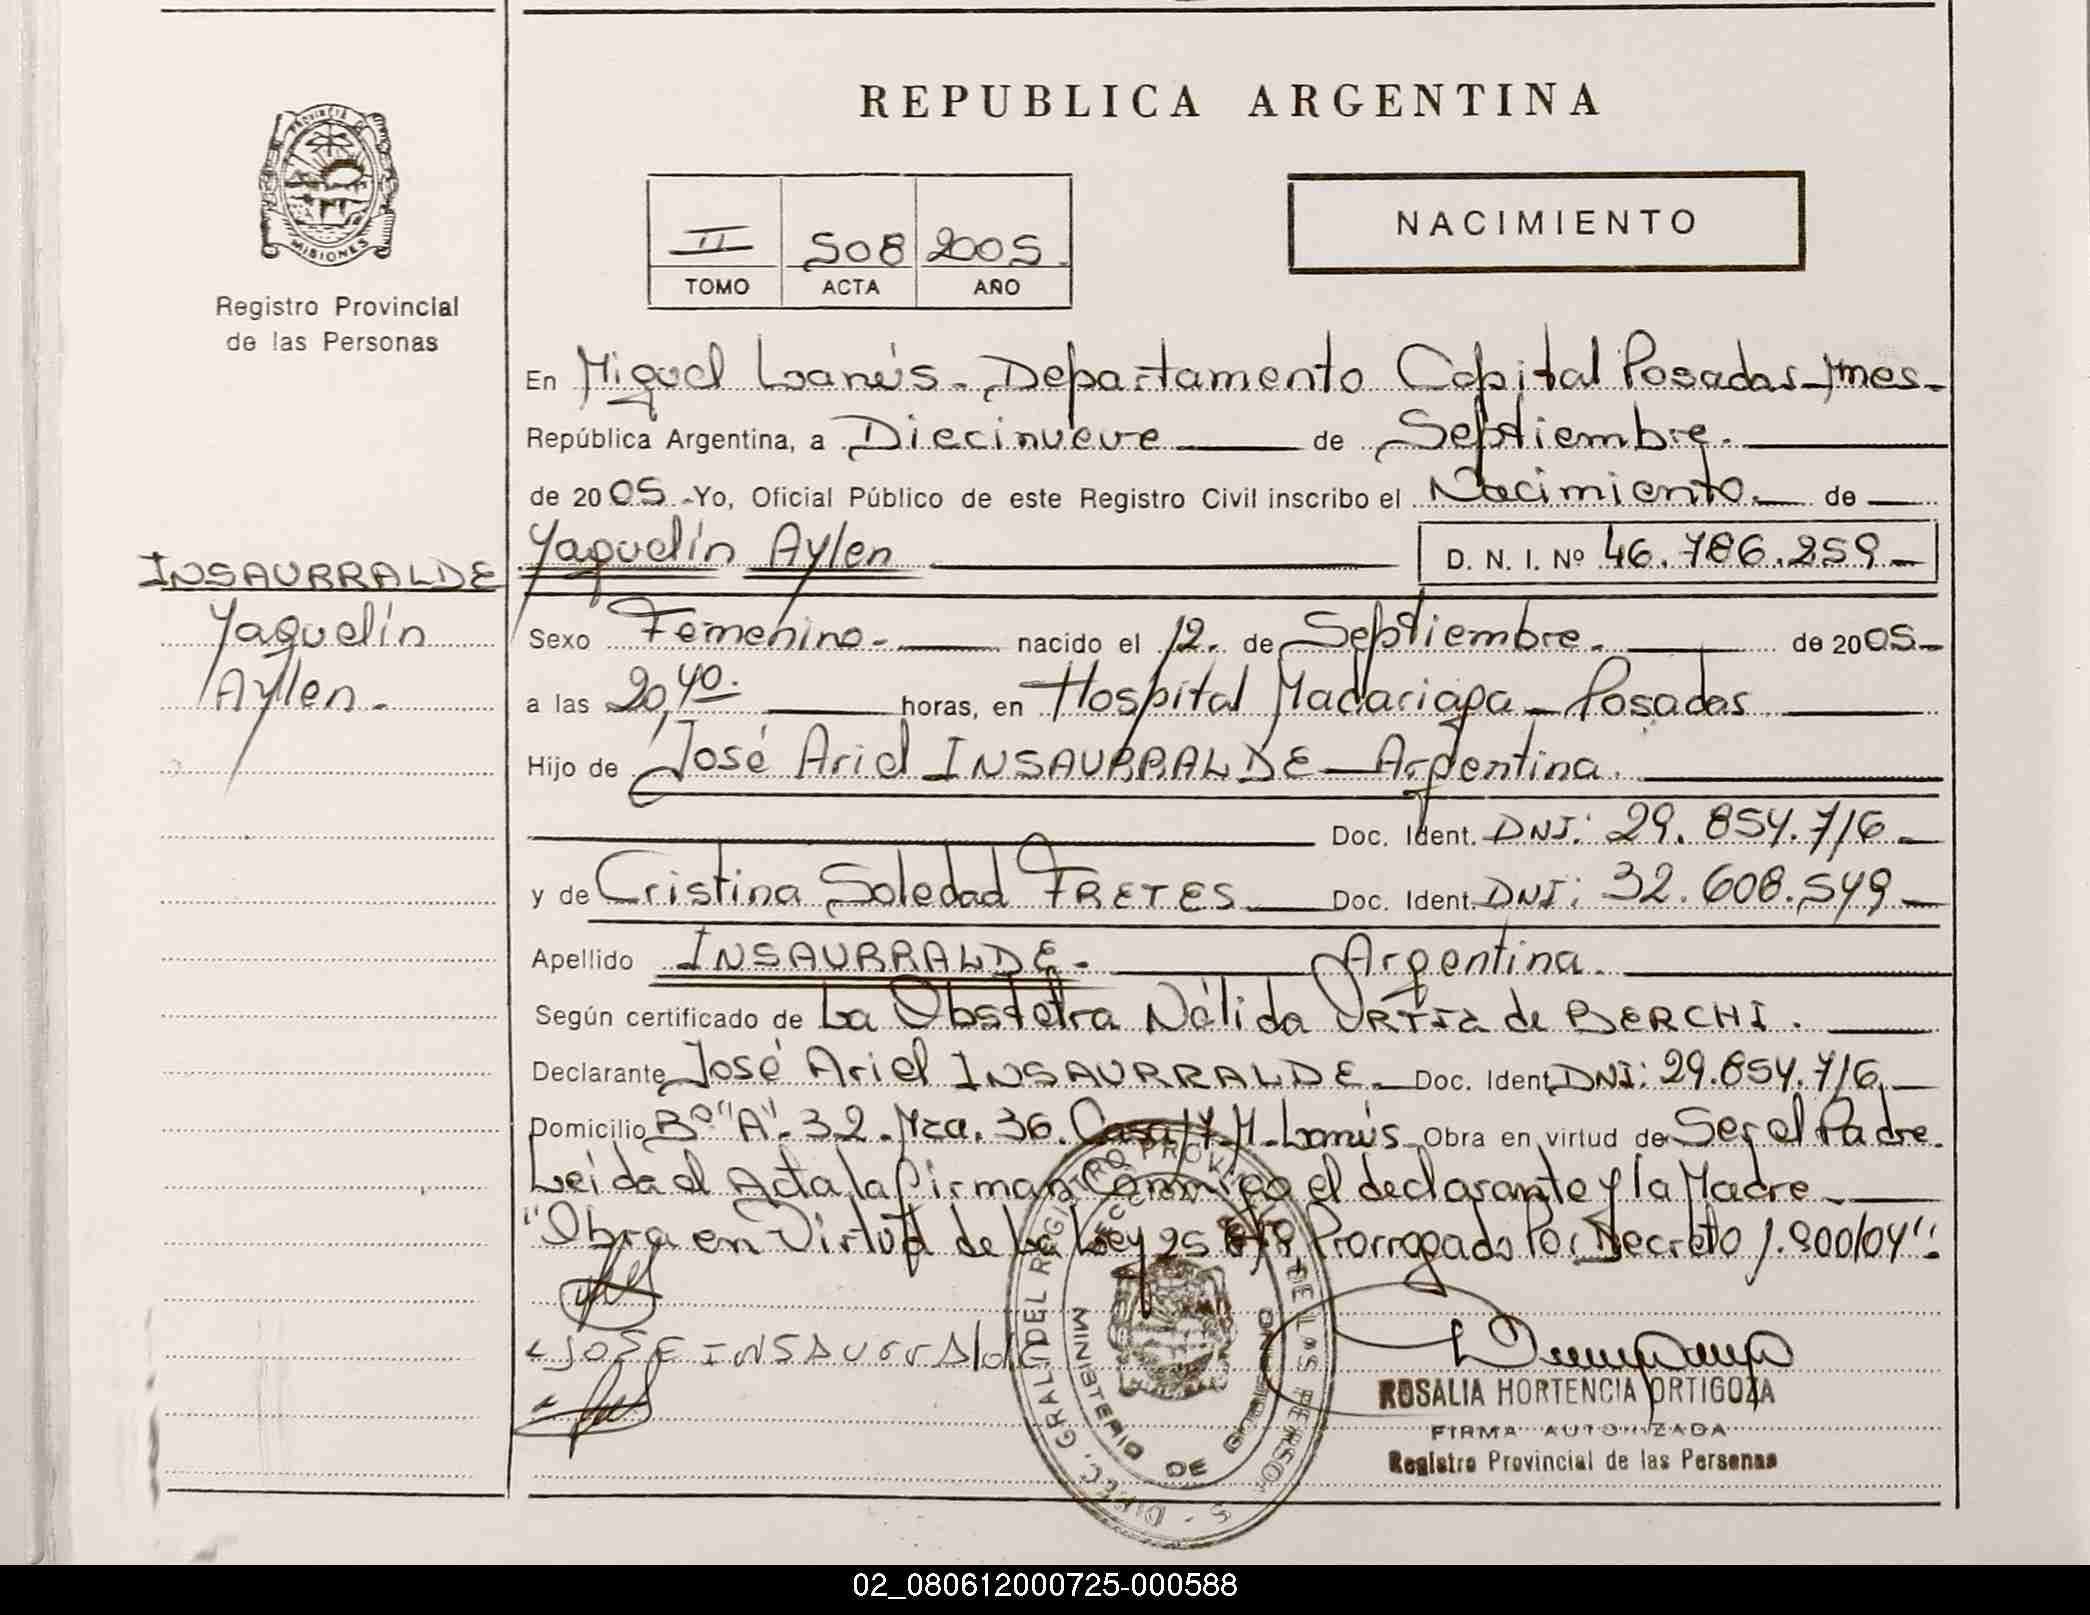 REPUBLICA ARGENTINA
PROVINCIA DE
MISIONES
Registro Provincial
de las Personas
NACIMIENTO
II 508 2005.
TOMO ACTA AÑO
En Miguel Lanús - Departamento Capital Posadas - Mnes -
República Argentina, a Diecinueve de Septiembre.
de 2005. - Yo, Oficial Público de este Registro Civil inscribo el Nacimiento. de
INSAURRALDE
Yaquelín
Aylen.-
Yaquelín Aylen D. N. I. Nº 46.786.259.-
Sexo Femenino.- nacido el 12. de Septiembre. de 2005.-
a las 20,40. horas, en Hospital Madariaga - Posadas
Hijo de José Ariel INSAURRALDE - Argentina.
Doc. Ident. DNI: 29.854.716.-
y de Cristina Soledad FRETES. Doc. Ident. DNI: 32.608.549.-
Apellido INSAURRALDE.- Argentina.
Según certificado de La Obstetra Nélida ORTIZ de BERCHI.
Declarante José Ariel INSAURRALDE.- Doc. Ident. DNI: 29.854.716.-
Domicilio Bº "A". 32. Mza. 36. Casa 17 M. Lanús - Obra en virtud de Ser el Padre.
Leida el Acta, la firman Conmigo el declarante y la Madre.-
"Obra en Virtud de La Ley 25 819, Prorrogado Por Decreto 1.900/04".
JOSE INSAURRALDE
DIREC. GRAL. DEL REGISTRO PROVINCIAL DE LAS PERSONAS
MINISTERIO DE
ROSALIA HORTENCIA ORTIGOZA
FIRMA AUTORIZADA
Registro Provincial de las Personas
02_080612000725-000588